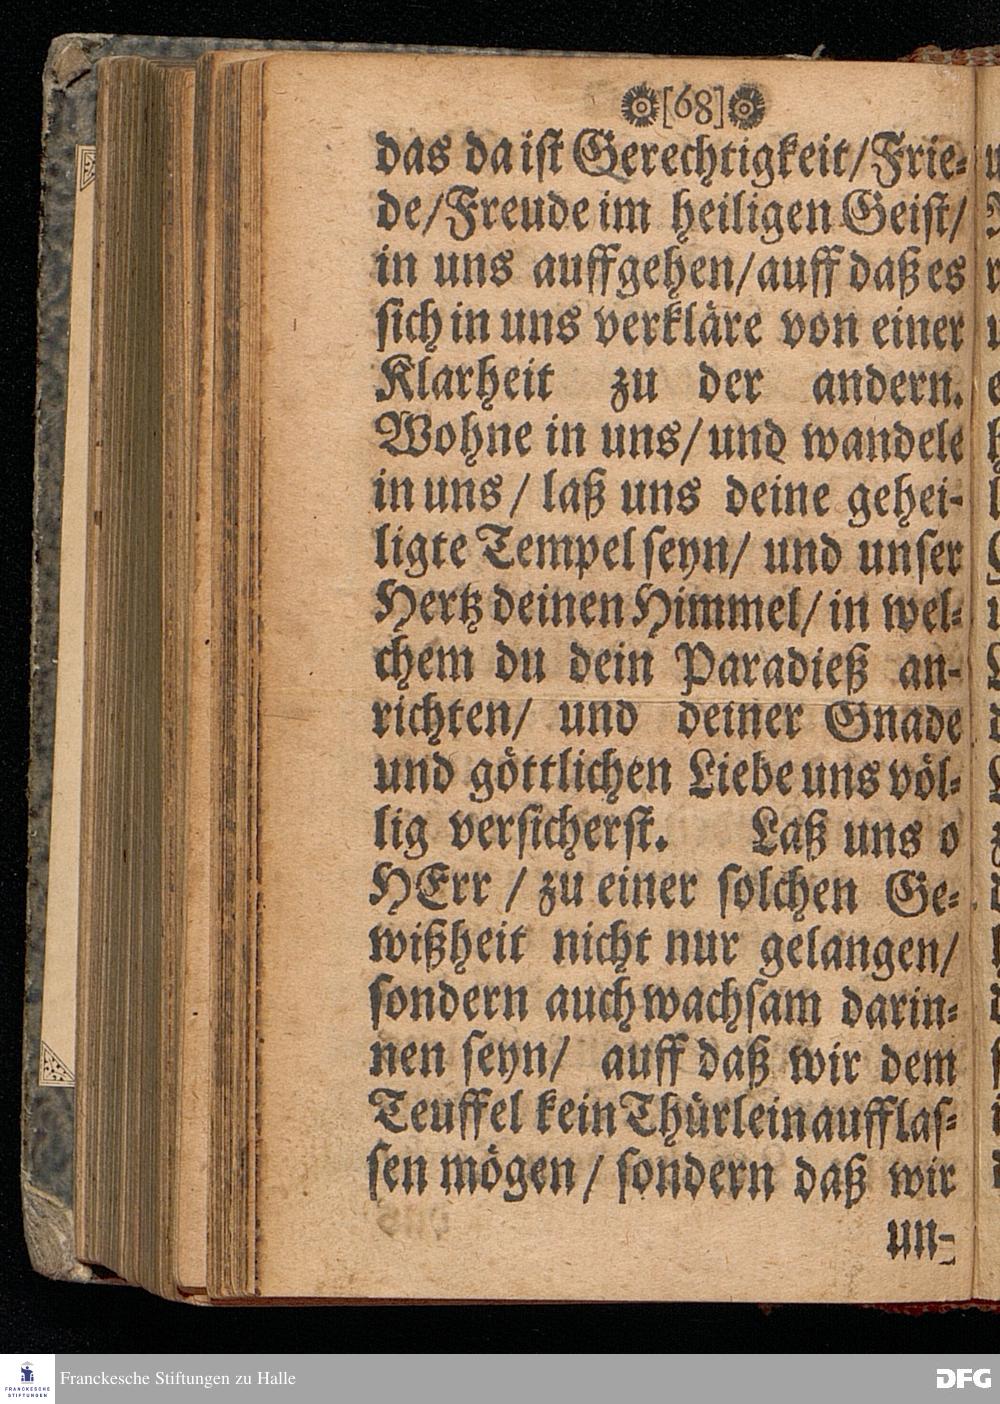 [68]
das da ist Gerechtigkeit/Frie-
de/Freude im heiligen Geist/
in uns auffgehen/auff daß es
sich in uns verkläre von einer
Klarheit zu der andern.
Wohne in uns/und wandele
in uns/ laß uns deine gehei-
ligte Tempel seyn/ und unser
Hertz deinen Himmel/in wel-
chem du dein Paradieß an-
richten/ und deiner Gnade
und göttlichen Liebe uns völ-
lig versicherst. Laß uns o
HErr / zu einer solchen Ge-
wißheit nicht nur gelangen/
sondern auch wachsam darin-
nen seyn/ auff daß wir dem
Teuffel kein Thürlein aufflas-
sen mögen/ sondern daß wir
un-
FRANCKESCHE STIFTUNGEN
Franckesche Stiftungen zu Halle
DFG